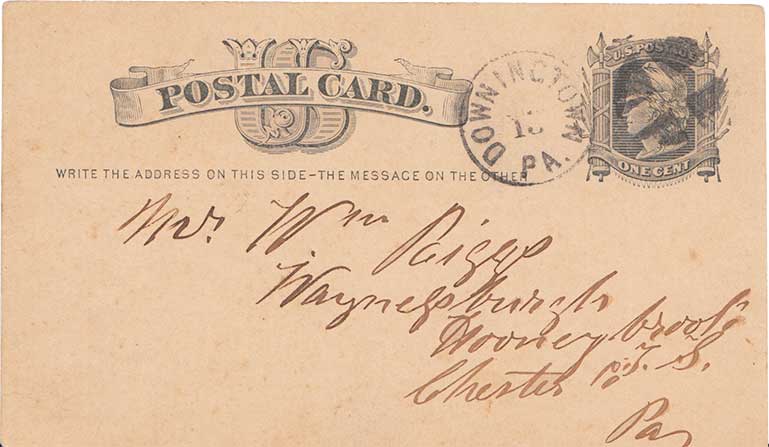 U S
POSTAL CARD.
U.S. POSTAGE
ONE CENT
DOWNINGTOWN PA.
13
WRITE THE ADDRESS ON THIS SIDE–THE MESSAGE ON THE OTHER
Mr. Wm Riggs
Waynesburgh
Honeybrook
T. S.
Chester Co.
Pa